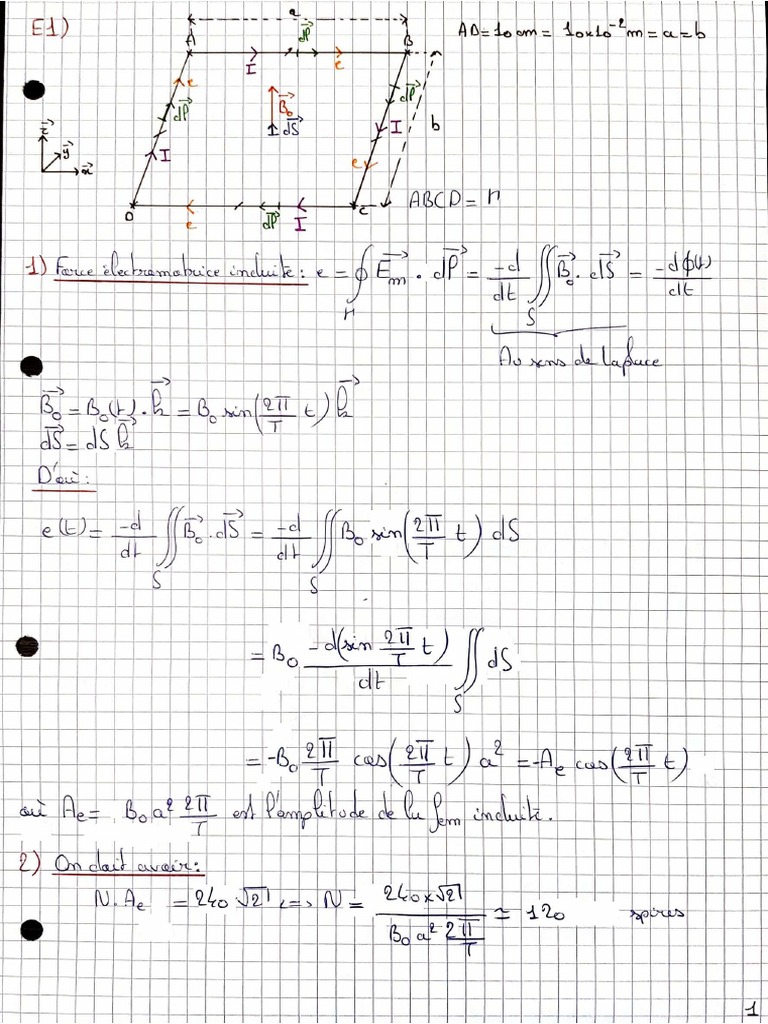 E1)
a
A
B
AD = 10 cm = 10×10⁻² m = a = b
dP⃗
I
e
e
dP⃗
B⃗₀
dP⃗
dS⃗
I
b
z⃗
y⃗
x⃗
I
e
D
e
dP⃗
I
C
ABCD = Γ
1) Force électromotrice induite : e = ∮_Γ E⃗m · dP⃗ = -d/dt ∬_S B⃗₀ · dS⃗ = -dϕ(t)/dt
Au sens de Laplace
B⃗₀ = B₀(t) · k⃗ = B₀ sin(2π/T t) k⃗
dS⃗ = dS k⃗
D'où :
e(t) = -d/dt ∬_S B⃗₀ · dS⃗ = -d/dt ∬_S B₀ sin(2π/T t) dS
= B₀ -d(sin 2π/T t)/dt ∬_S dS
= -B₀ 2π/T cos(2π/T t) a² = -Ae cos(2π/T t)
où Ae = B₀a² 2π/T est l'amplitude de la fem induite.
2) On doit avoir :
N.Ae = 240 √2 <=> N = 240×√2 / (B₀ a² 2π/T) ≃ 120 spires
1